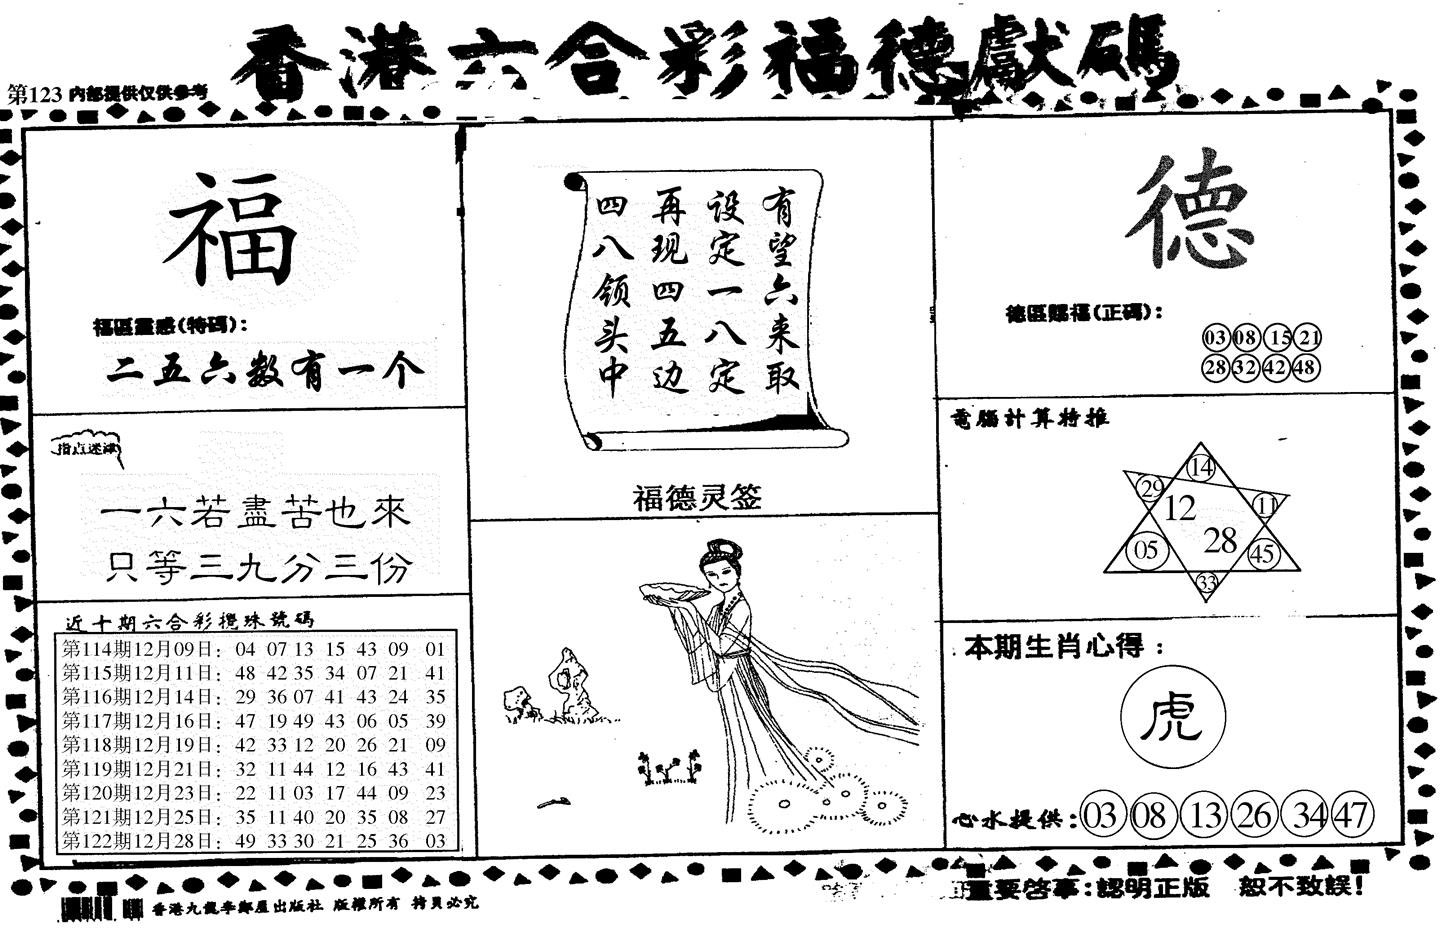 香港六合彩福德獻碼
第123 内部提供仅供参考
福
福區靈感(特碼):
二五六数有一个
指点迷津
一六若盡苦也來
只等三九分三份
近十期六合彩攪珠號碼
第114期12月09日: 04 07 13 15 43 09 01
第115期12月11日: 48 42 35 34 07 21 41
第116期12月14日: 29 36 07 41 43 24 35
第117期12月16日: 47 19 49 43 06 05 39
第118期12月19日: 42 33 12 20 26 21 09
第119期12月21日: 32 11 44 12 16 43 41
第120期12月23日: 22 11 03 17 44 09 23
第121期12月25日: 35 11 40 20 35 08 27
第122期12月28日: 49 33 30 21 25 36 03
有望六来取
设定一八定
再现四五边
四八领头中
福德灵签
德
德區賜福(正碼):
03 08 15 21
28 32 42 48
電腦計算特推
14
29
11
12
28
05
45
33
本期生肖心得:
虎
心水提供: 03 08 13 26 34 47
重要啓事:認明正版 恕不致誤!
香港九龍李鄭屋出版社 版權所有 拷貝必究